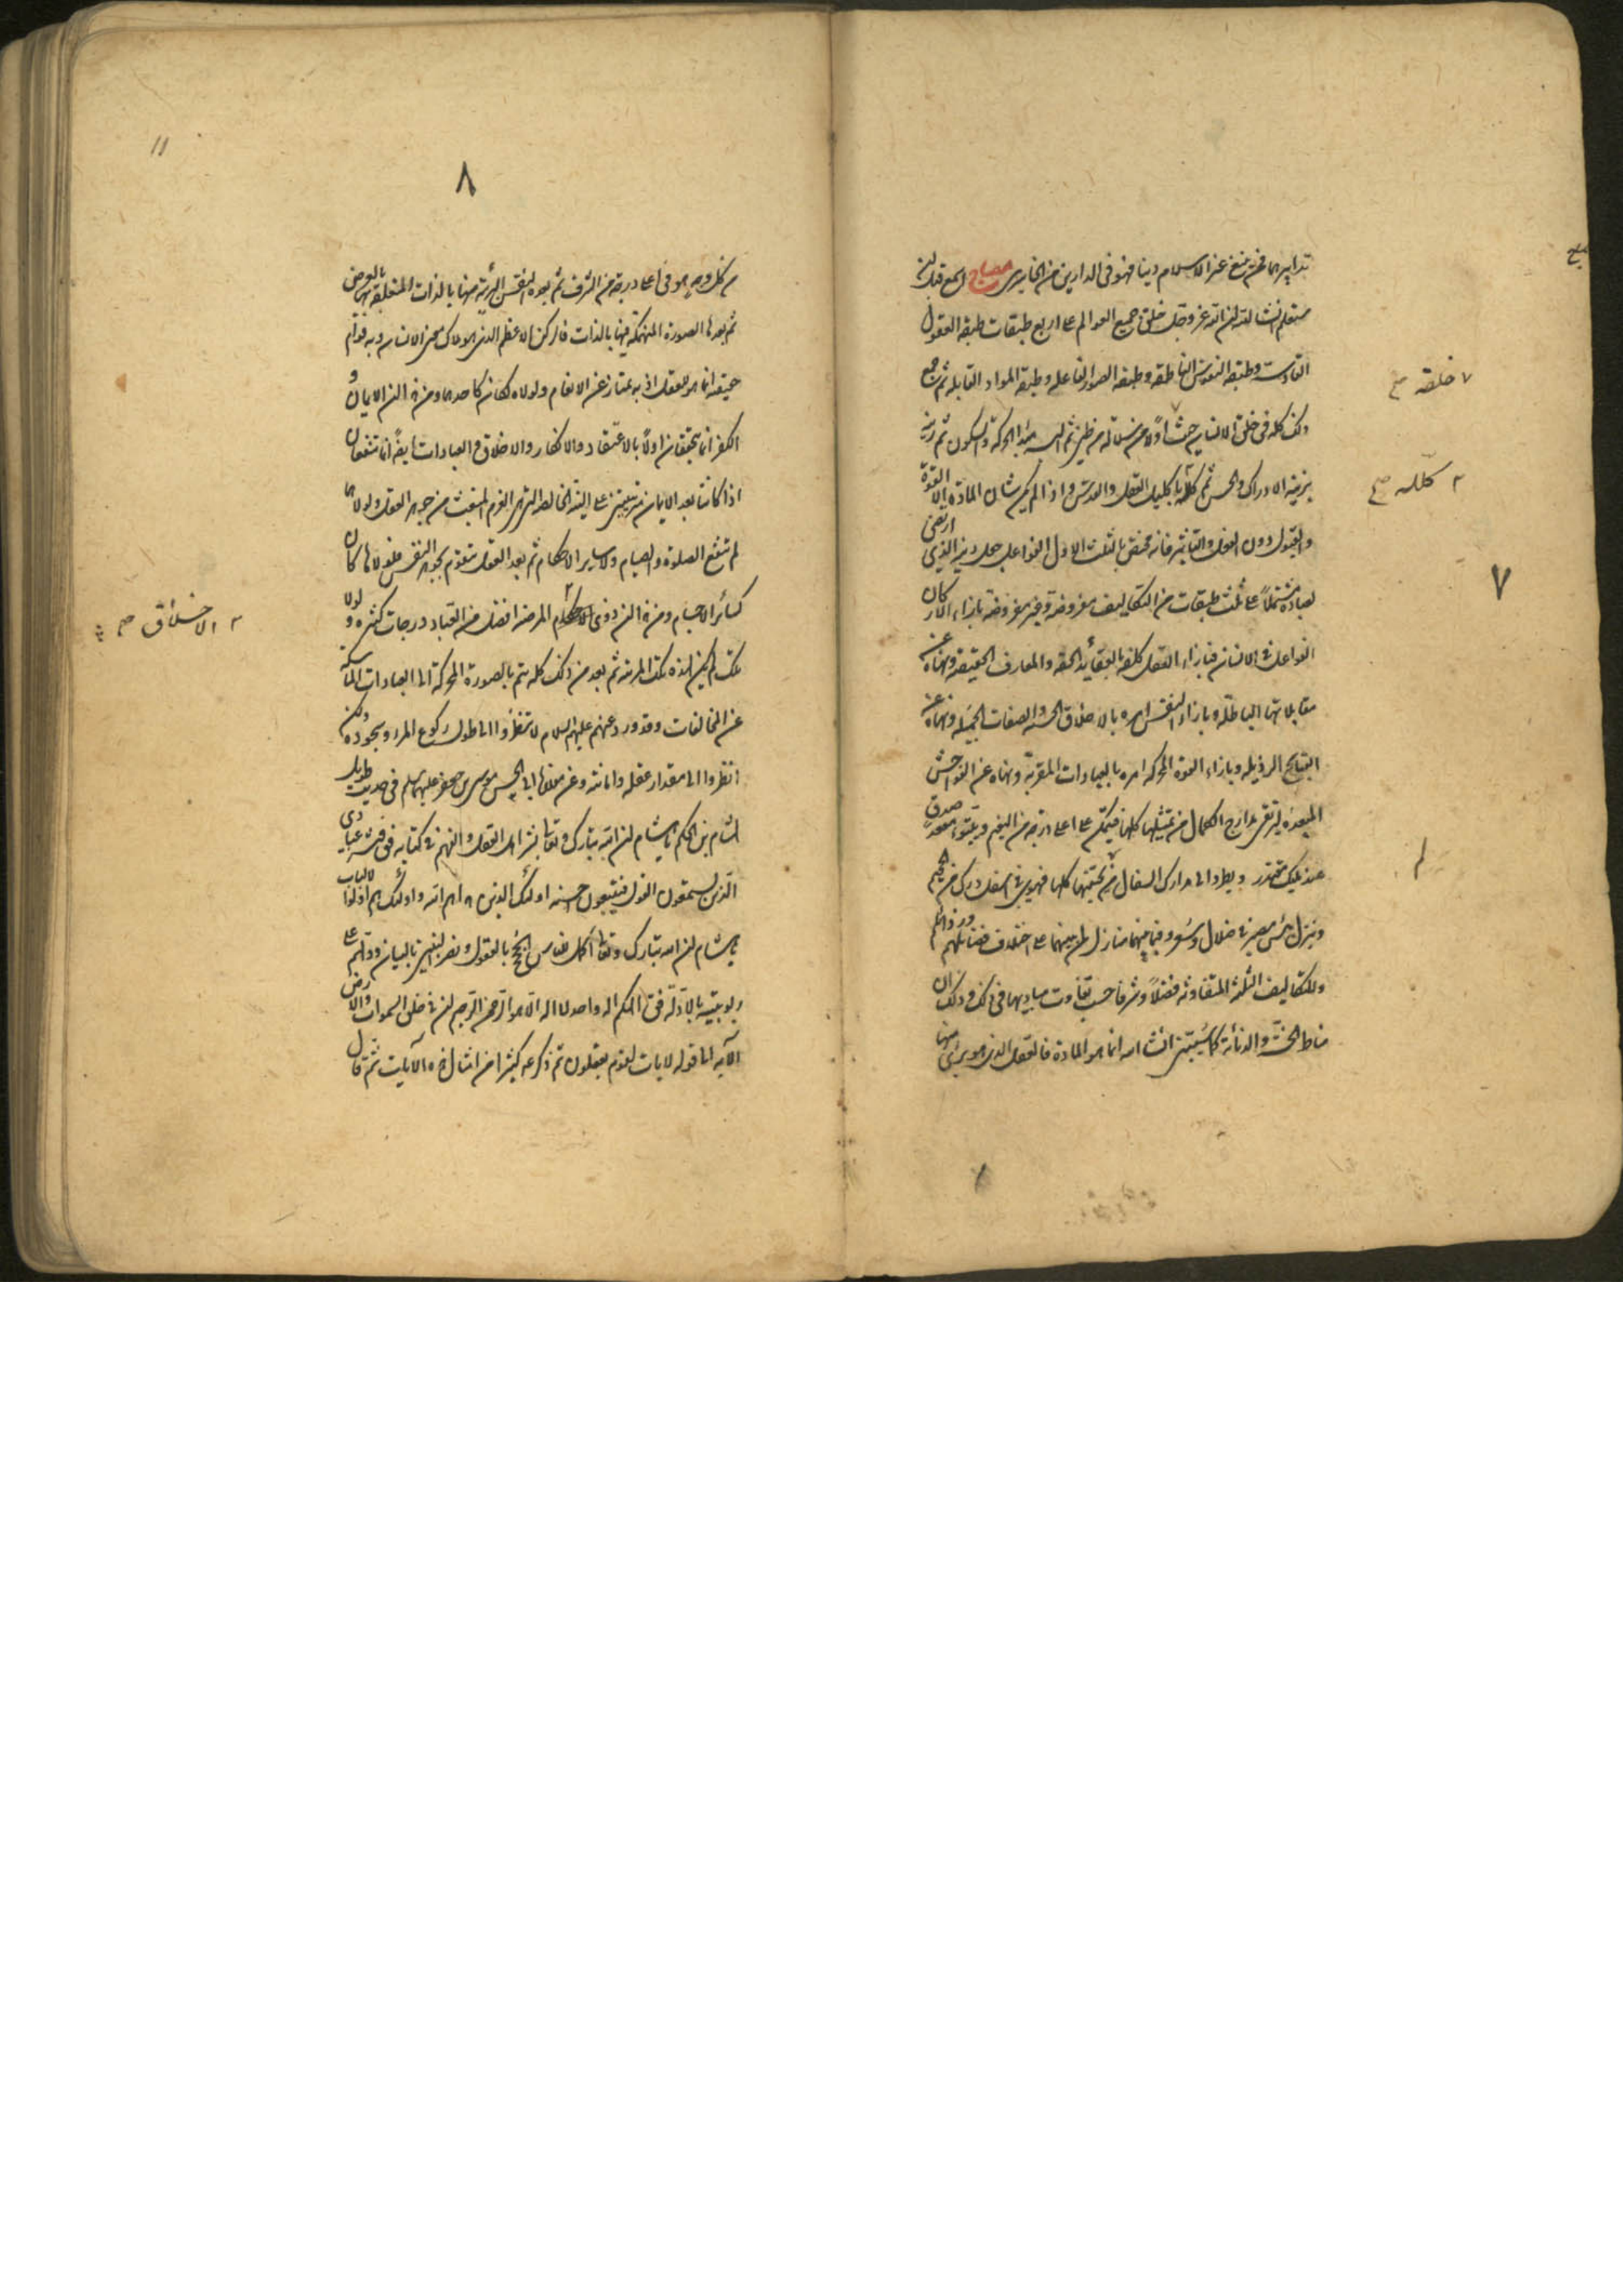 تدابيرها فمن يتبع غير الاسلام دينا فهو فى الدارين من الخاسرين مصباح اسمع قبل ان
ستعلم انشاء الله ان الله عز وجل خلق جميع العوالم على اربع طبقات طبقة العقول
القادسة وطبقة النفوس الناطقة وطبقة الصور الفاعلة وطبقة المواد القابلة ثم جمع
ذلك كله فى خلق الانسان حيث اولا من سلالة من طين ثم البسه مبدا الحركة والسكون ثم زينه
بزينة الادراك والحس ثم كلله باكليل العقل والقدس واذا لم يكن شان المادة الا القوة
والقبول دون الفعل والتاثير فانه مختص بالثلث الاول الفواعل جعل دينه الذى ارتضى
لعباده مشتملا على ثلث طبقات من التكاليف مفروضة وغير مفروضة بازاء الاركان
الفواعل فى الانسان فبازاء العقل كلفه بالعقائد الحقة والمعارف الحقيقة ونهاه عن
مقابلاتها الباطلة وبازاء النفس امره بالاخلاق الحسنة والصفات الجميلة ونهاه عن
القبايح الرذيلة وبازاء القوة المحركة امره بالعبادات المقربة ونهاه عن الفواحش
المبعدة ليرتقى مدارج الكمال من تمثيلها كلها فيتمكن على اعلى درجة من النعيم ويتبوء مقعد صدق
عند مليك مقتدر ويطرد الى مدارك السفال من تحتيتها كلها فيهوى فى اسفل درك من الجحيم
وينزل بئس مصير فى ضلال وسعر وفيما بينهما منازل لمن بينهما على اختلاف فضائلهم ورذائلهم
وللتكاليف الثلثة المتفاوتة فضلا وشرفا حسب تفاوت مباديها فى ذلك وذلك ان
مناط الخسة والدنائة كما سيتبين انشاء الله انما هو المادة فالعقل الذى هو برئ منها
خلقه صح
كلله صح
٧
٨
من كل وجه هو فى اعلى درجة من الشرف ثم بعده النفس البريئة منها بالذات المتعلقة بها بالعرض
ثم بعدها الصورة المنهمكة فيها بالذات فالركن الاعظم الذى هو ملاك معنى الانسان وبه قوام
حقيقته انما هو العقل اذ به يمتاز عن الانعام ولولاه لكان كاحدها ومن ثم الن الايمان و
الكفر انما يتحققان اولا بالاعتقاد والانكار والاخلاق والعبادات ايضا انما تنفعان
اذا كانتا بعد الايمان مترتبتين على النية الخالصة التى هى العزم المنبعث من جوهر العقل ولولاها
لم تنفع الصلوة والصيام ولا ساير الاحكام ثم بعد العقل يتقوم بجوهر النفس فلولاها كان
كسائر الاجسام ومن ثم الن ذوى المرضية افضل من العباد درجات كثيرة ولولا
تلك لم يكن لهذه تلك المرتبة ثم بعد من ذلك كله يتم بالصورة المحركة الى العبادات الماسكة
عن المخالفات وقد ورد عنهم عليهم السلام لا تنظروا الى طول ركوع المرء وسجوده ولكن
انظروا الى مقدار عقله وامانته وعن مولانا ابى الحسن موسى بن جعفر عليهما السلم فى حديث طويل
هشام بن الحكم يا هشام ان الله تبارك وتعالى بشر اهل العقل والفهم فى كتابه فقال فبشر عبادى
الذين يستمعون القول فيتبعون احسنه اولئك الذين هداهم الله واولئك هم اولوا الالباب
يا هشام ان الله تبارك وتعالى اكمل للناس الحجج بالعقول ونصر النبيين بالبيان ودلهم على
ربوبيته بالادلة فقال الهكم اله واحد لا اله الا هو الرحمن الرحيم ان فى خلق السموات والارض
الآية الى قوله لايات لقوم يعقلون ثم ذكر عه كثيرا من امثال هذه الآيات ثم قال
الاخلاق صح